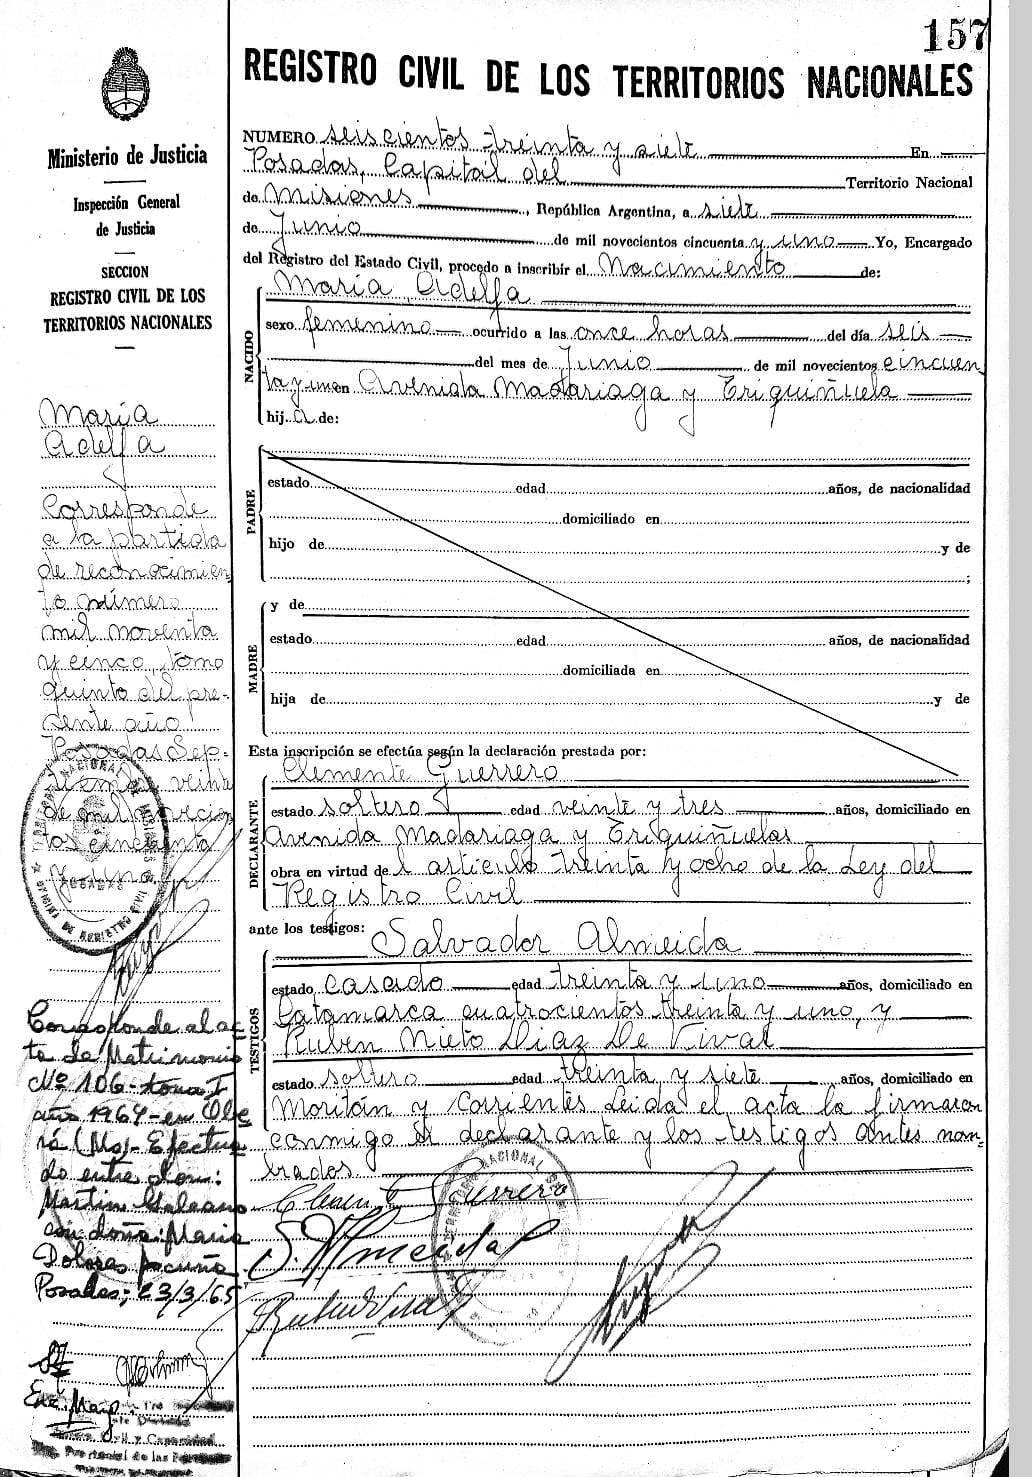 157
REGISTRO CIVIL DE LOS TERRITORIOS NACIONALES
Ministerio de Justicia
Inspección General
de Justicia
SECCION
REGISTRO CIVIL DE LOS
TERRITORIOS NACIONALES
María
Adelfa
Corresponde
a la partida
de reconocimien-
to número
mil noventa
y cinco, tomo
quinto del pre-
sente año
Posadas Sep-
veinte
de mil
cincuenta
y uno
Corresponde al ac
ta de Matrimonio
Nº 106 - tomo I
año 1964 - en Obe
rá (Ms) - Efectua
do entre don:
Martin Galeano
con doña: Maria
Dolores Acuña
Posadas; 23/3/65
NUMERO seiscientos treinta y siete En
Posadas, Capital del Territorio Nacional
de Misiones, República Argentina, a siete
de Junio de mil novecientos cincuenta y uno Yo, Encargado
del Registro del Estado Civil, procedo a inscribir el Nacimiento de:
NACIDO
María Adelfa
sexo femenino ocurrido a las once horas del día seis
del mes de Junio de mil novecientos cincuen
ta y uno en Avenida Madariaga y Triquiñuela
hija de:
PADRE
estado edad años, de nacionalidad
domiciliado en
hijo de y de
;
MADRE
y de
estado edad años, de nacionalidad
domiciliada en
hija de y de
Esta inscripción se efectúa según la declaración prestada por:
DECLARANTE
Clemente Guerrero
estado soltero edad veinte y tres años, domiciliado en
Avenida Madariaga y Triquiñuelas
obra en virtud del artículo treinta y ocho de la Ley del
Registro Civil
ante los testigos: Salvador Almeida
TESTIGOS
estado casado edad treinta y uno años, domiciliado en
Catamarca cuatrocientos treinta y uno, y
Ruben Nieto Diaz De Vivar
estado soltero edad treinta y siete años, domiciliado en
Moritán y Corrientes Leida el acta la firmaron
conmigo el declarante y los testigos antes nom-
brados
Clemente Guerrero
S. Almeida